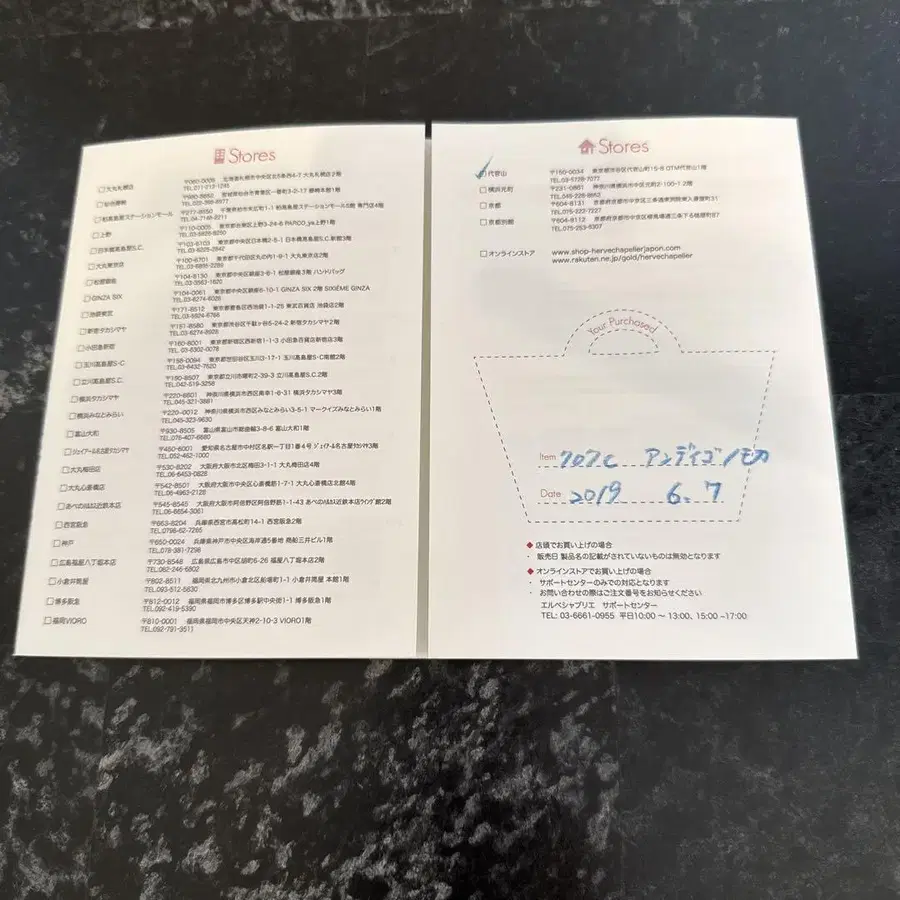 Stores
大丸札幌店 〒060-0005 北海道札幌市中央区北5条西4-7 大丸札幌店2階
TEL.011-213-1245
仙台藤崎
柏高島屋ステーションモール
TEL.04-7148-2211
上野 〒110-0005 東京都台東区上野3-24-6 PARCO_ya上野1階
日本橋高島屋S.C. 〒103-6103 東京都中央区日本橋2-5-1 日本橋高島屋S.C.新館3階
大丸東京店 〒100-6701 東京都千代田区丸の内1-9-1 大丸東京店2階
TEL.03-6895-2280
松屋銀座 〒104-8130 東京都中央区銀座3-6-1 松屋銀座3階 ハンドバッグ
GINZA SIX 〒104-0061 東京都中央区銀座6-10-1 GINZA SIX 2階 SIXIÈME GINZA
TEL.03-6274-6028
池袋東武 〒171-8512 東京都豊島区西池袋1-1-25 東武百貨店 池袋店2階
新宿タカシマヤ 〒151-8580 東京都渋谷区千駄ヶ谷5-24-2 新宿タカシマヤ2階
小田急新宿 〒160-8001 東京都新宿区西新宿1-1-3 小田急百貨店新宿店3階
TEL.03-6302-0078
玉川高島屋S·C 〒158-0094 東京都世田谷区玉川3-17-1 玉川高島屋S·C南館2階
TEL.03-6432-7620
立川高島屋S.C. 東京都立川市曙町2-39-3 立川高島屋S.C.2階
TEL.042-519-3258
横浜タカシマヤ 〒220-8601 神奈川県横浜市西区南幸1-6-31 横浜タカシマヤ3階
TEL.045-321-3881
横浜みなとみらい 〒220-0012 神奈川県横浜市西区みなとみらい3-5-1 マークイズみなとみらい1階
TEL.045-323-9630
富山大和 〒930-8505 富山県富山市総曲輪3-8-6 富山大和1階
TEL.076-407-6680
ジェイアール名古屋タカシマヤ 〒450-6001 愛知県名古屋市中村区名駅一丁目1番4号 ジェイアール名古屋タカシマヤ3階
TEL.052-462-1000
大丸梅田店 〒530-8202 大阪府大阪市北区梅田3-1-1 大丸梅田店4階
TEL.06-6453-0828
大丸心斎橋店 〒542-8501 大阪府大阪市中央区心斎橋筋1-7-1 大丸心斎橋店北館4階
TEL.06-4963-2128
あべのハルカス近鉄本店 〒545-8545 大阪府大阪市阿倍野区阿倍野筋1-1-43 あべのハルカス近鉄本店ウイング館2階
TEL.06-6654-3061
西宮阪急 〒663-8204 兵庫県西宮市高松町14-1 西宮阪急2階
TEL.0798-62-7265
神戸 〒650-0024 兵庫県神戸市中央区海岸通5番地 商船三井ビル1階
TEL.078-391-7298
広島福屋八丁堀本店 〒730-8548 広島県広島市中区胡町6-26 福屋八丁堀本店2階
TEL.082-246-6802
小倉井筒屋 〒802-8511 福岡県北九州市小倉北区船場町1-1 小倉井筒屋 本館1階
TEL.093-512-5630
博多阪急 〒812-0012 福岡県福岡市博多区博多駅中央街1-1 博多阪急1階
TEL.092-419-5390
福岡VIORO 〒810-0001 福岡県福岡市中央区天神2-10-3 VIORO1階
TEL.092-791-3511
Stores
代官山 〒150-0034 東京都渋谷区代官山町15-8 OTM代官山1階
TEL.03-5728-7077
横浜元町 〒231-0861 神奈川県横浜市中区元町2-100-1 2階
京都 〒604-8131
TEL.075-222-7227
京都別館 〒604-8112
TEL.075-253-6307
オンラインストア www.shop-hervechapelierjapon.com
www.rakuten.ne.jp/gold/hervechapelier
Your Purchased
Item 707C アンディゴ/モカ
Date 2019 6.7
◆ 店頭でお買い上げの場合
・ 販売日 製品名の記載がされていないものは無効となります
◆ オンラインストアでお買い上げの場合
・ サポートセンターのみでの対応となります
・ お問い合わせの際はご注文番号をお知らせください
エルベシャプリエ サポートセンター
TEL: 03-6661-0955 平日10:00 ～ 13:00、15:00 ~17:00